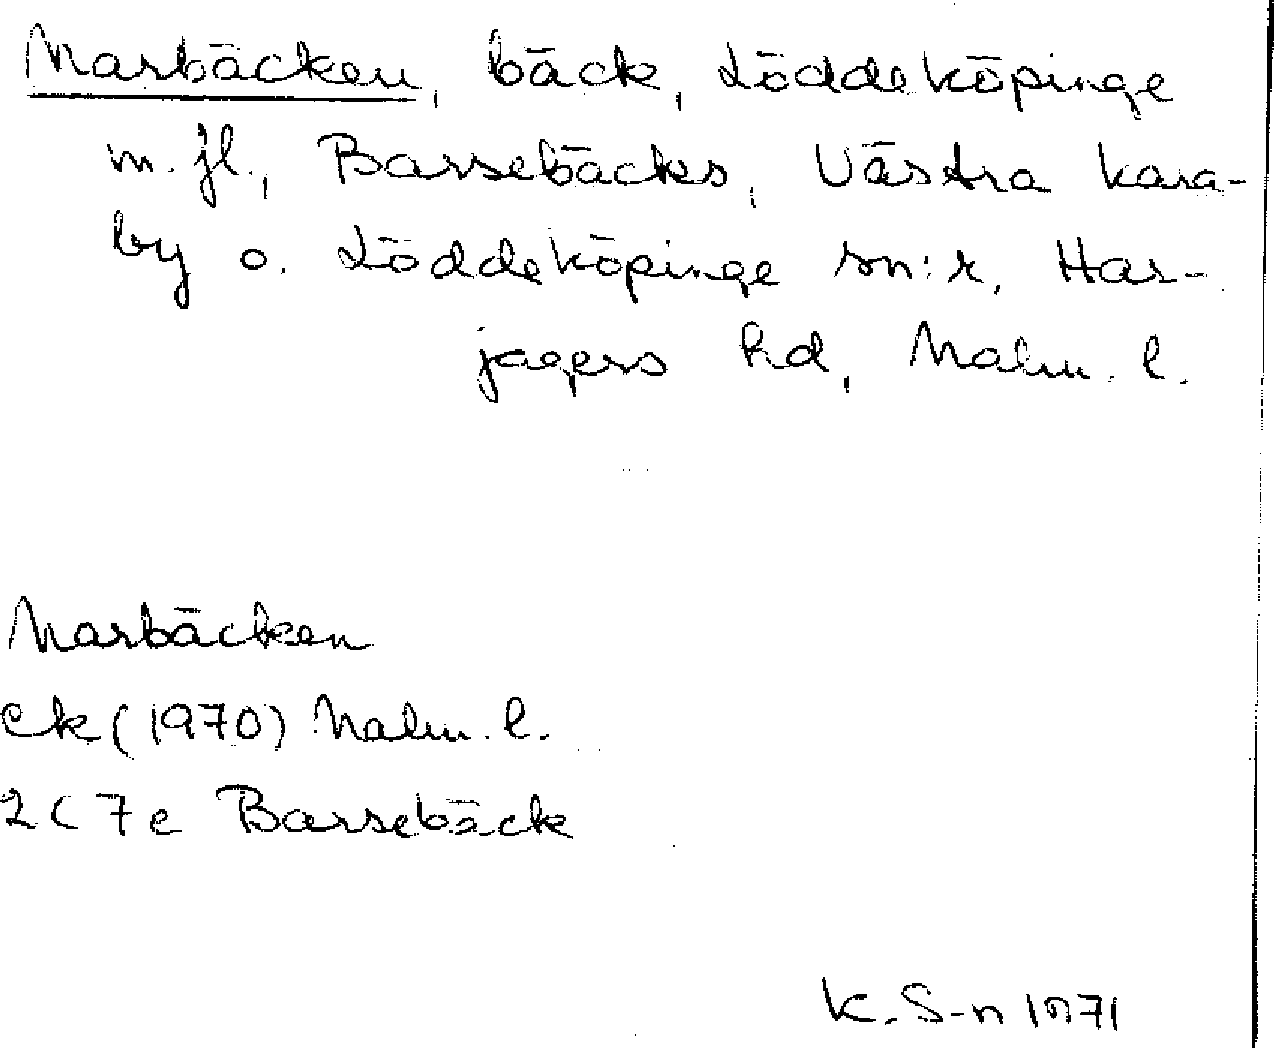 Marbäcken, bäck, Löddeköpinge
m.fl., Barsebäcks, Västra Kara-
by o. Löddeköpinge sn:r, Har-
jagers hd, Malm. l.
Marbäcken
Ek (1970) Malm. l.
2C 7e Barsebäck
K. S-n 1971